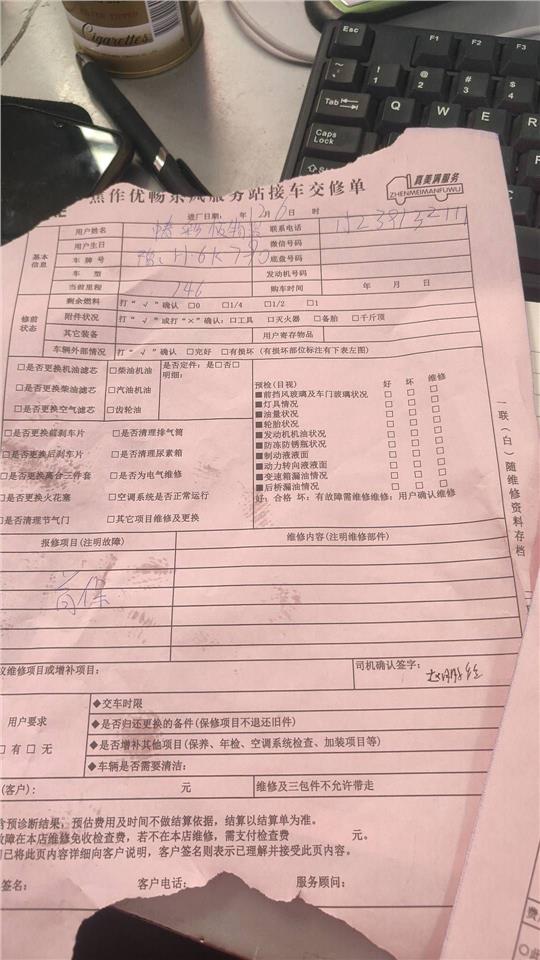 FILTER TIPPED
Cigarettes
Esc F1 F2 F3
~ ! 1 @ 2 # 3 $ 4
Tab Q W E
Caps Lock
焦作优畅东风服务站接车交修单
真美满服务
ZHENMEIMANFUWU
进厂日期: 年 12月6日 时
基本信息
用户姓名 联系电话
用户生日 微信号码
车牌号 底盘号码
车型 发动机号码
当前里程 746 购车时间 年 月 日
修前状态
剩余燃料 打“√”确认 □0 □1/4 □1/2 □1
附件状况 打“√”或打“×”确认:□工具 □灭火器 □备胎 □千斤顶
其它装备 用户寄存物品
车辆外部情况 打“√”确认 □完好 □有损坏(有损坏部位标注有下表左图)
□是否更换机油滤芯 □柴油机油 是否定件:是□否□
明细:
□是否更换柴油滤芯 □汽油机油
□是否更换空气滤芯 □齿轮油
□是否更换前刹车片 □是否清理排气筒
□是否更换后刹车片 □是否清理尿素箱
□是否更换离合三件套 □是否为电气维修
□是否更换火花塞 □空调系统是否正常运行
□是否清理节气门 □其它项目维修及更换
预检(目视) 好 坏 维修
■前挡风玻璃及车门玻璃状况 □ □ □
■灯具情况 □ □ □
■油量状况 □ □ □
■轮胎状况 □ □ □
■发动机机油状况 □ □ □
■防冻防锈瓶状况 □ □ □
■制动液液面 □ □ □
■动力转向液液面 □ □ □
■变速箱漏油情况 □ □ □
■后桥漏油情况 □ □ □
好:合格 坏:有故障需维修维修:用户确认维修
一联(白)随维修资料存档
报修项目(注明故障) 维修内容(注明维修部件)
首保
议维修项目或增补项目: 司机确认签字:
用户要求
□有□无
◆交车时限
◆是否归还更换的备件(保修项目不退还旧件)
◆是否增补其他项目(保养、年检、空调系统检查、加装项目等)
◆车辆是否需要清洁:
(客户): 元 维修及三包件不允许带走
含预诊断结果,预估费用及时间不做结算依据,结算以结算单为准。
故障在本店维修免收检查费,若不在本店维修,需支付检查费 元。
已将此页内容详细向客户说明,客户签名则表示已理解并接受此页内容。
签名: 客户电话: 服务顾问: